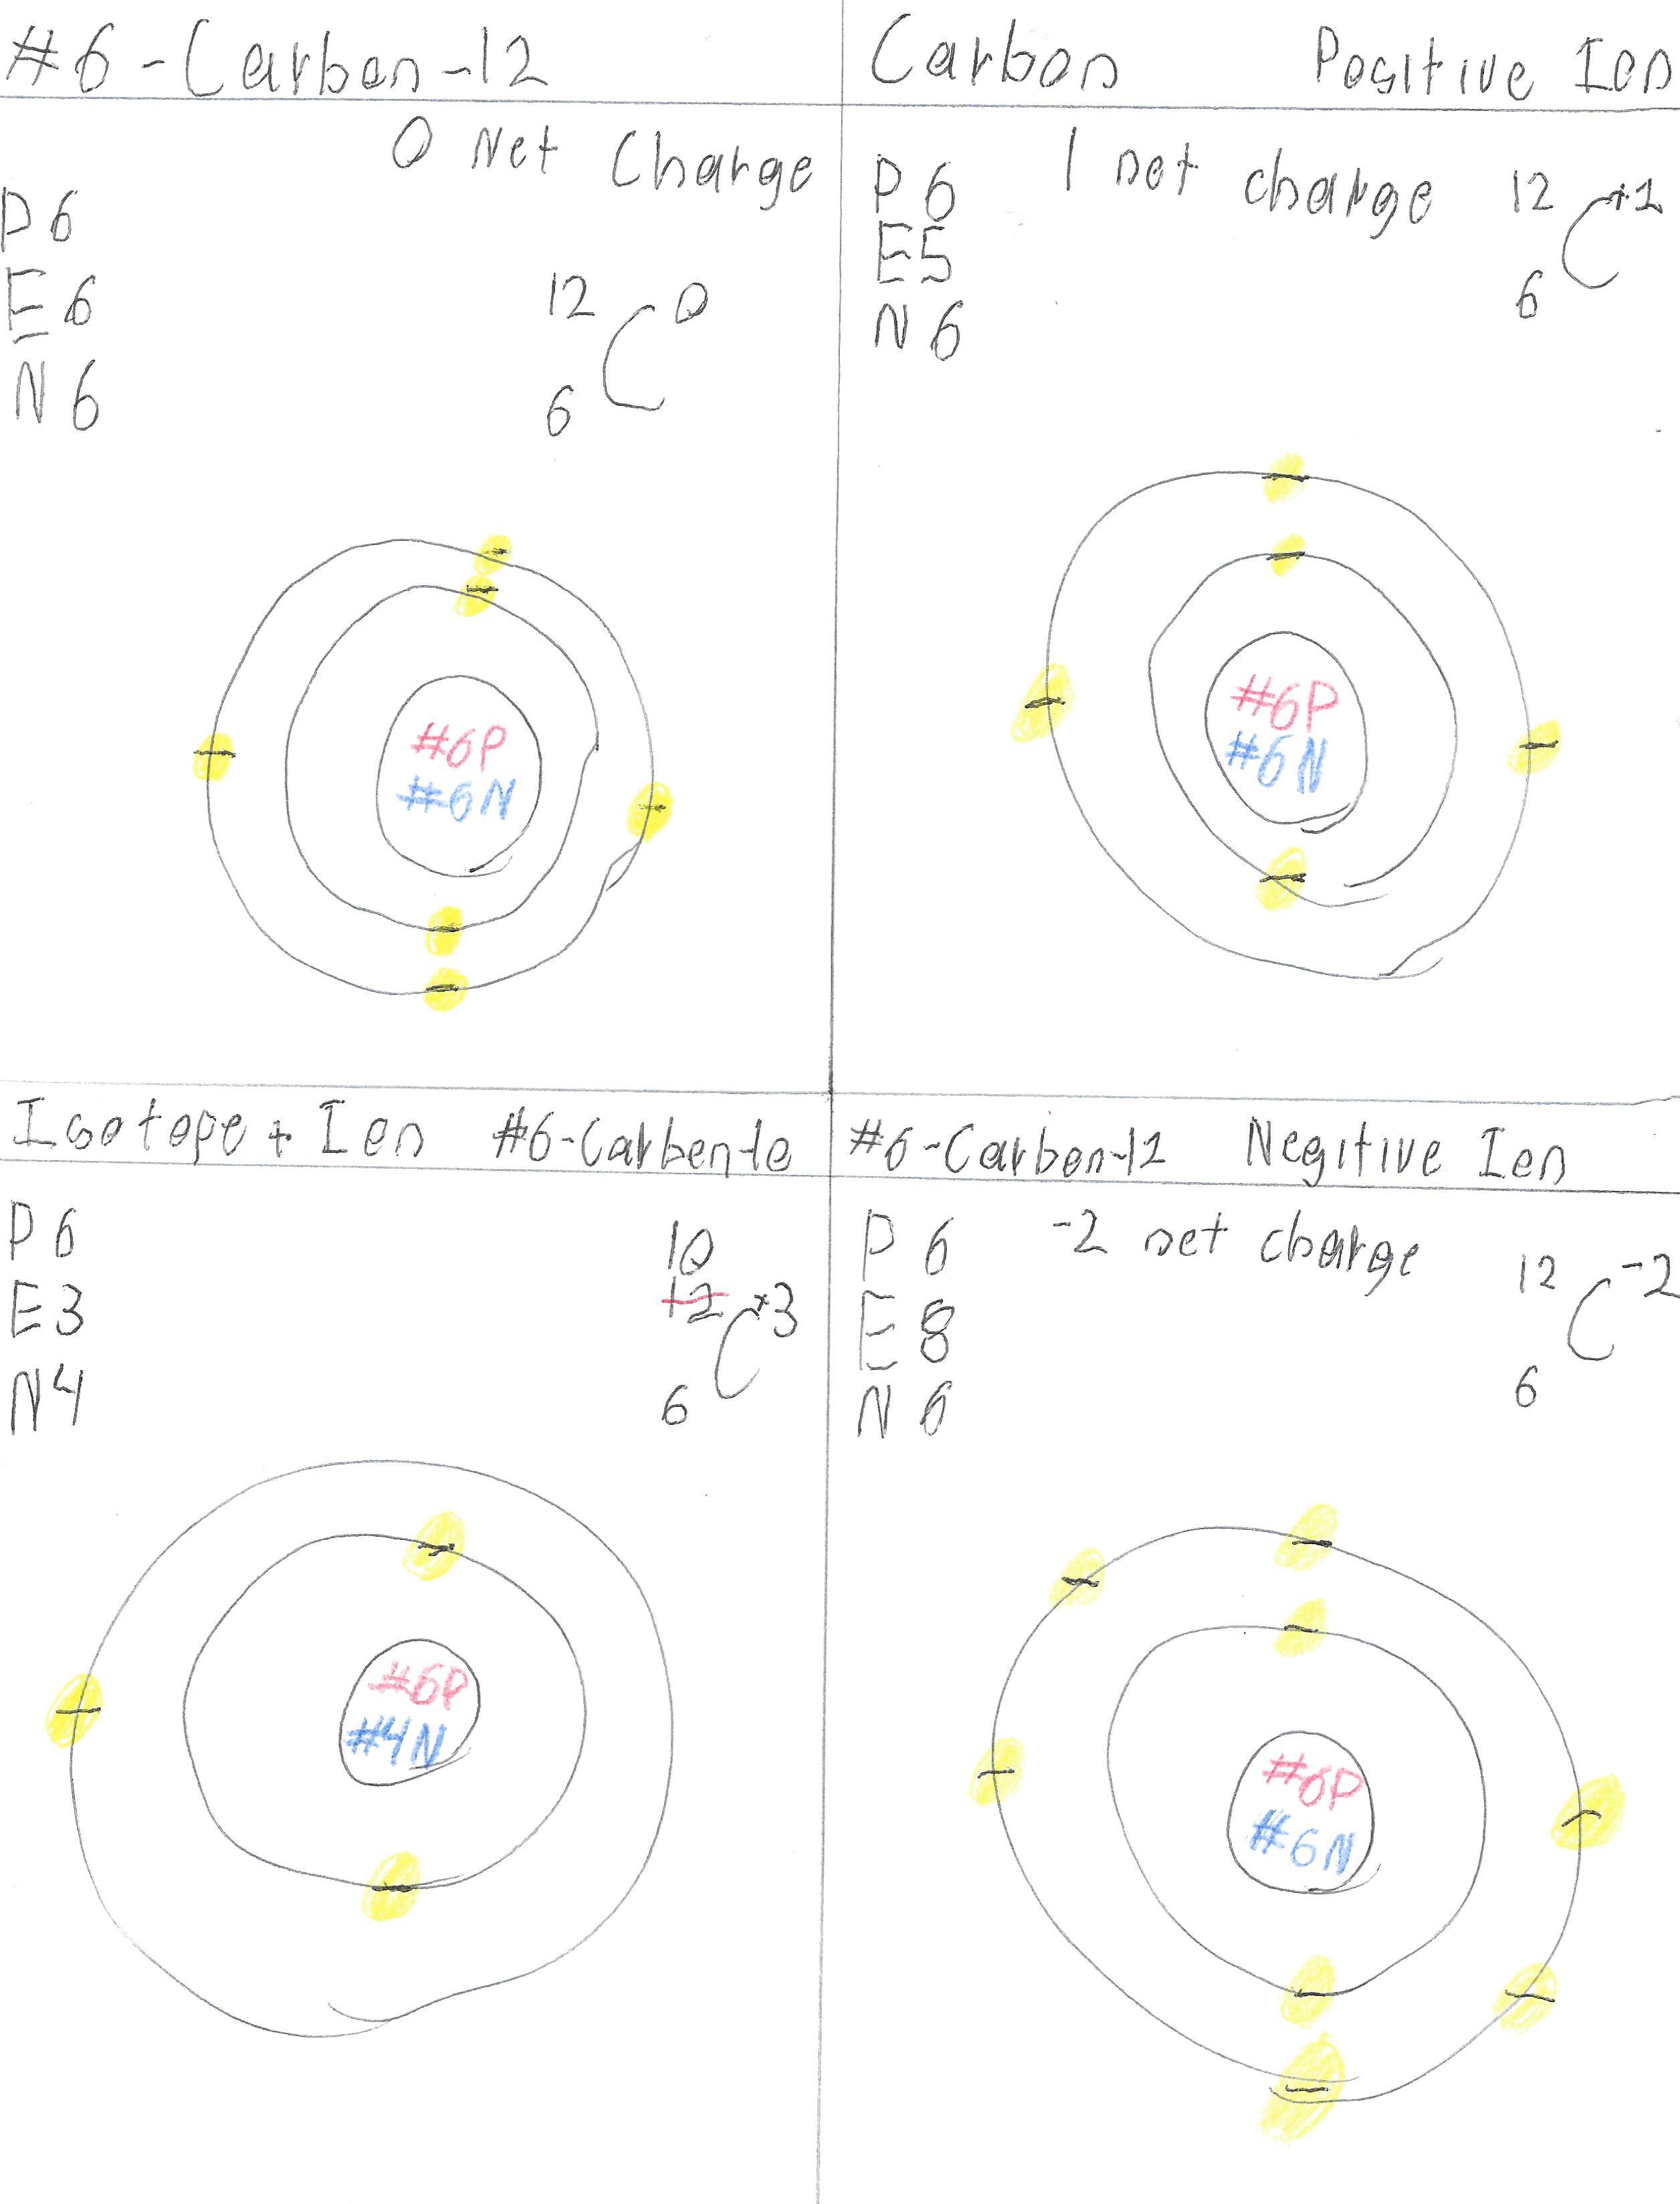 #6-Carbon-12
0 Net Charge
P 6
E 6
N 6
12
C 0
6
#6P
#6N
Carbon Positive Ion
P 6 1 net charge
E5
N 6
12
C +1
6
#6P
#6N
Isotope + Ion #6-Carbon-10
P 6
E 3
N 4
10
12 C +3
6
#6P
#4N
#6-Carbon-12 Negitive Ion
P 6 -2 net charge
E 8
N 6
12
C -2
6
#6P
#6N